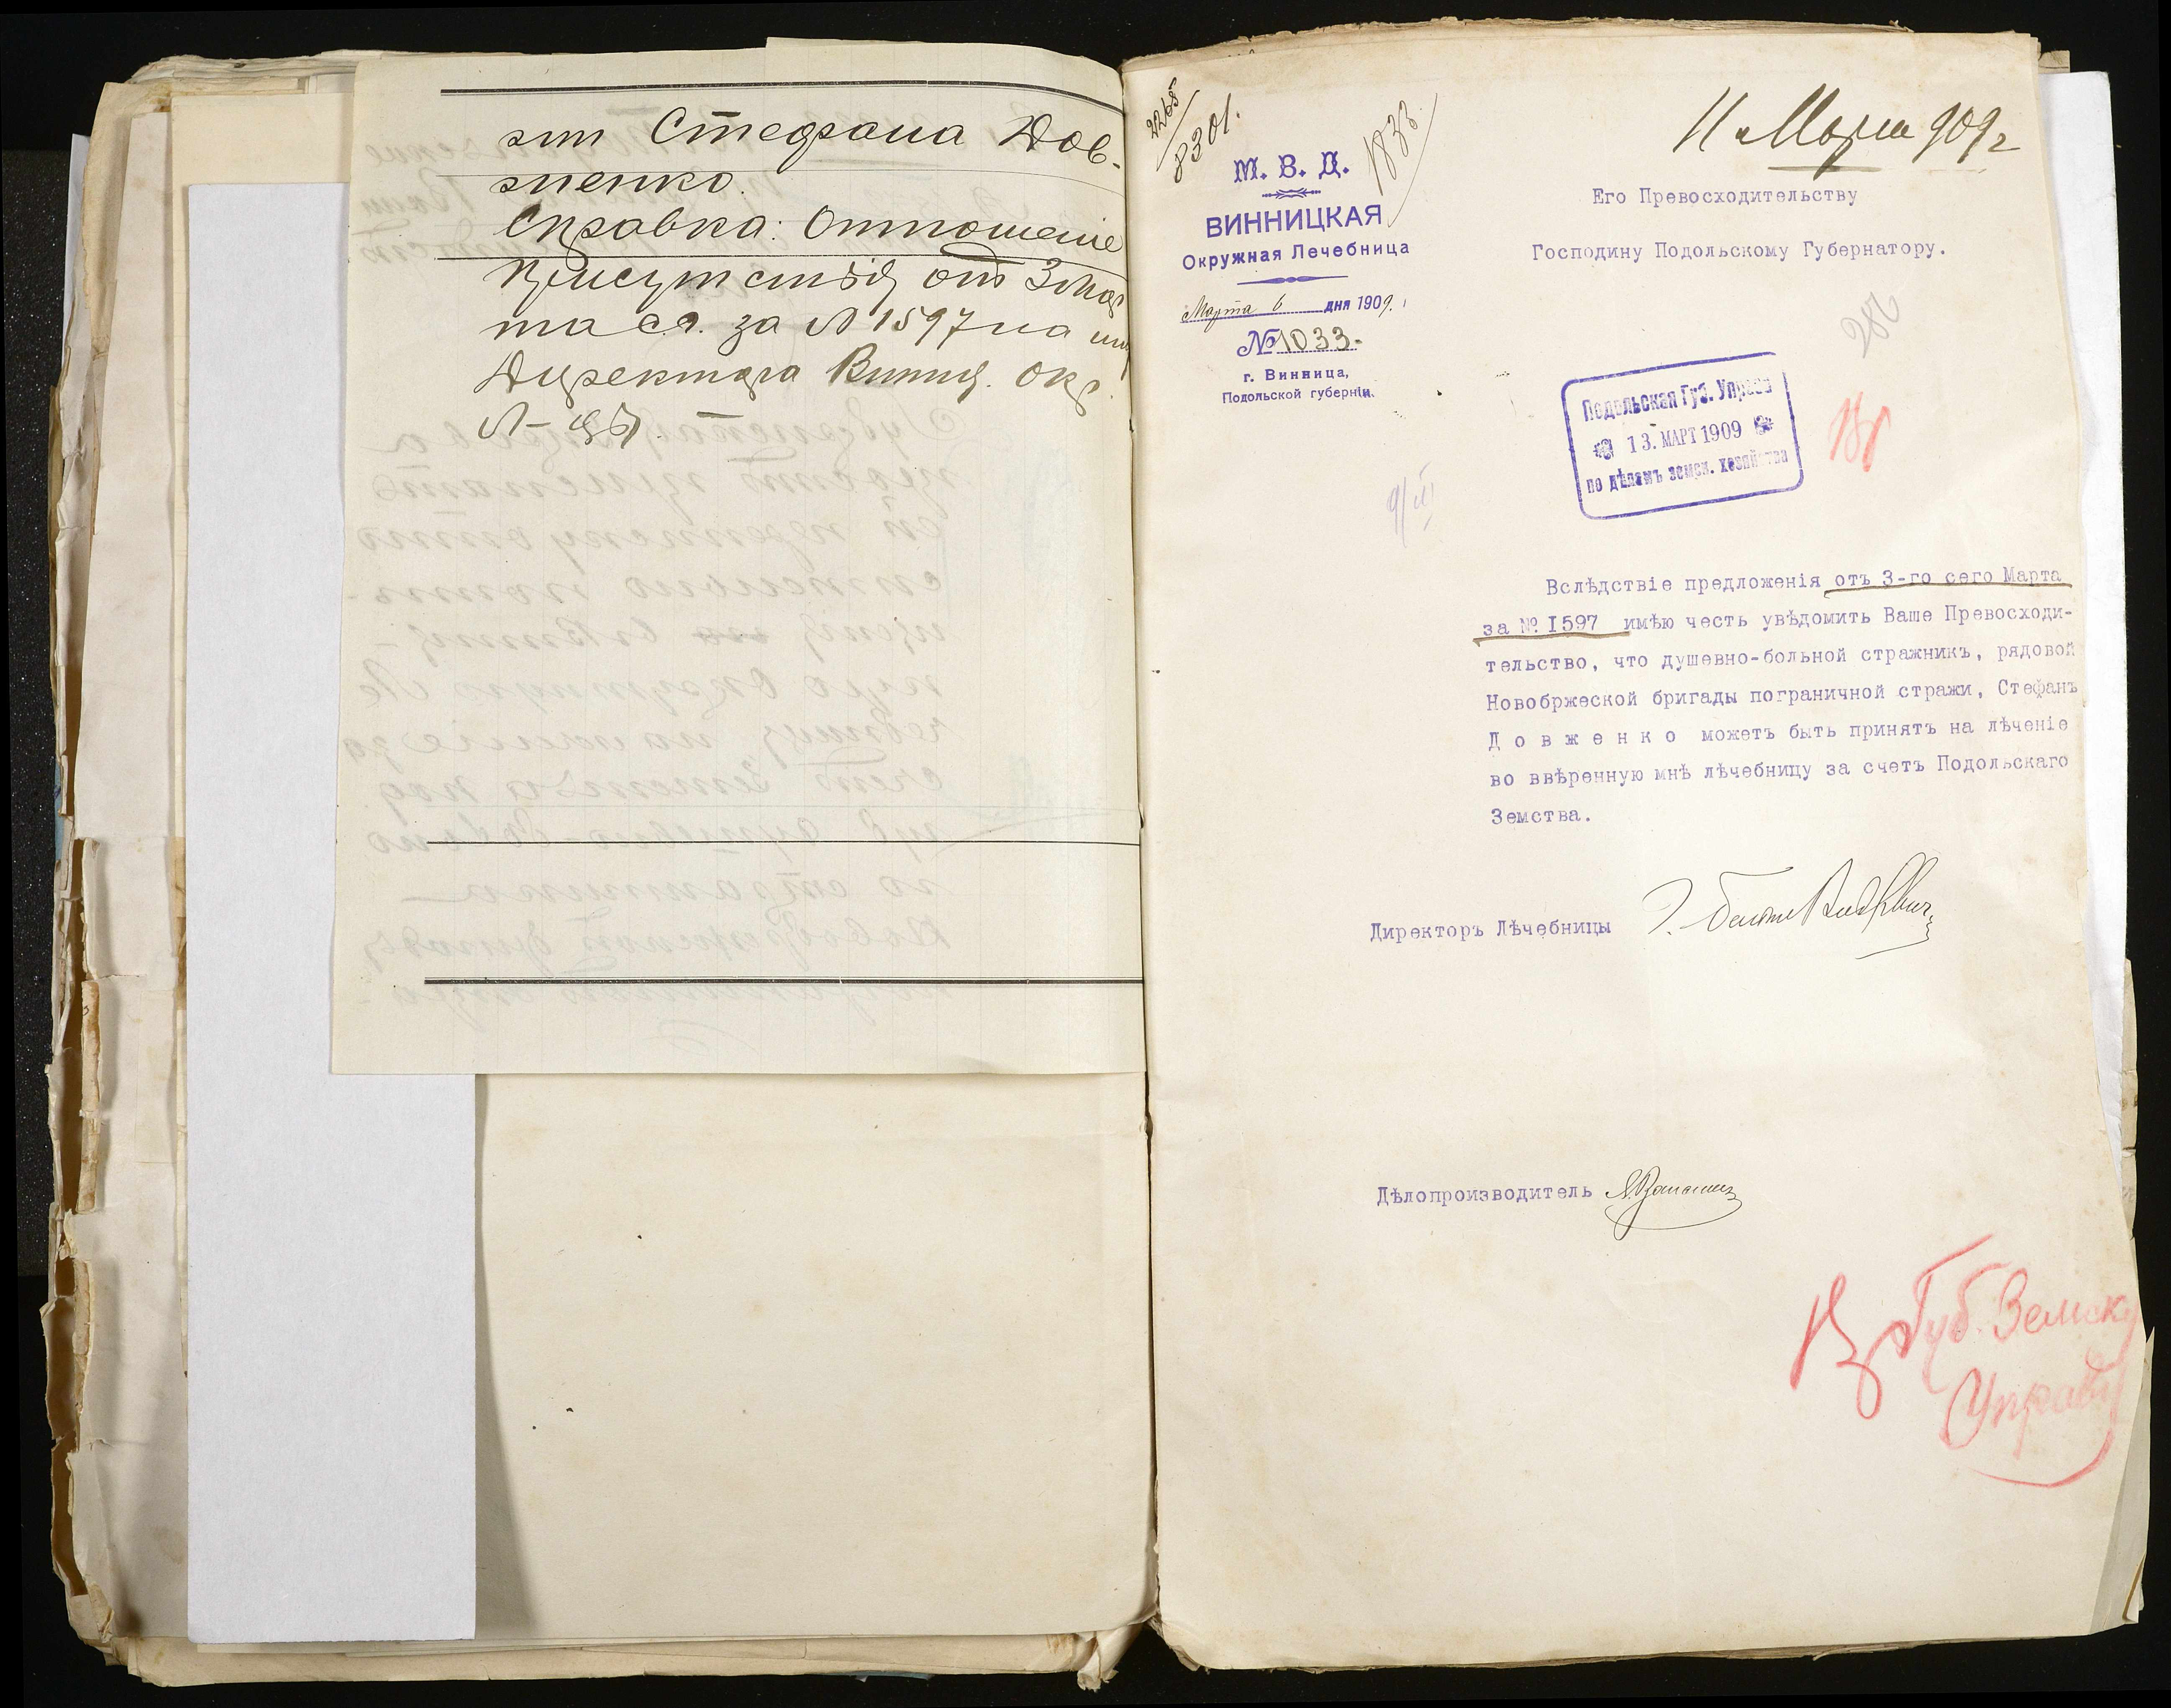 жи Стефана Дов-
женко.
Справка: Отношеніе
Присутствія отъ 3 Мар
та с.г. за № 1597 на имя
Директора Винниц. Окр.
2265
8301.
1833
М. В. Д.
ВИННИЦКАЯ
Окружная Лечебница
Марта 6 дня 1909.
№ 1033.
г. Винница,
Подольской губерніи.
11 Марта 909 г
Его Превосходительству
Господину Подольскому Губернатору.
Подольская Губ. Управа
13. МАРТ 1909
по дѣламъ земск. хозяйства
9/III
Вслѣдствіе предложенія отъ 3-го сего Марта
за № I597 имѣю честь увѣдомить Ваше Превосходи-
тельство, что душевно-больной стражникъ, рядовой
Новобржеской бригады пограничной стражи, Стефанъ
Д о в ж е н к о можетъ быть принятъ на лѣченіе
во ввѣренную мнѣ лѣчебницу за счетъ Подольскаго
Земства.
Директоръ Лѣчебницы
Дѣлопроизводитель
В Губ. Земску
Управу